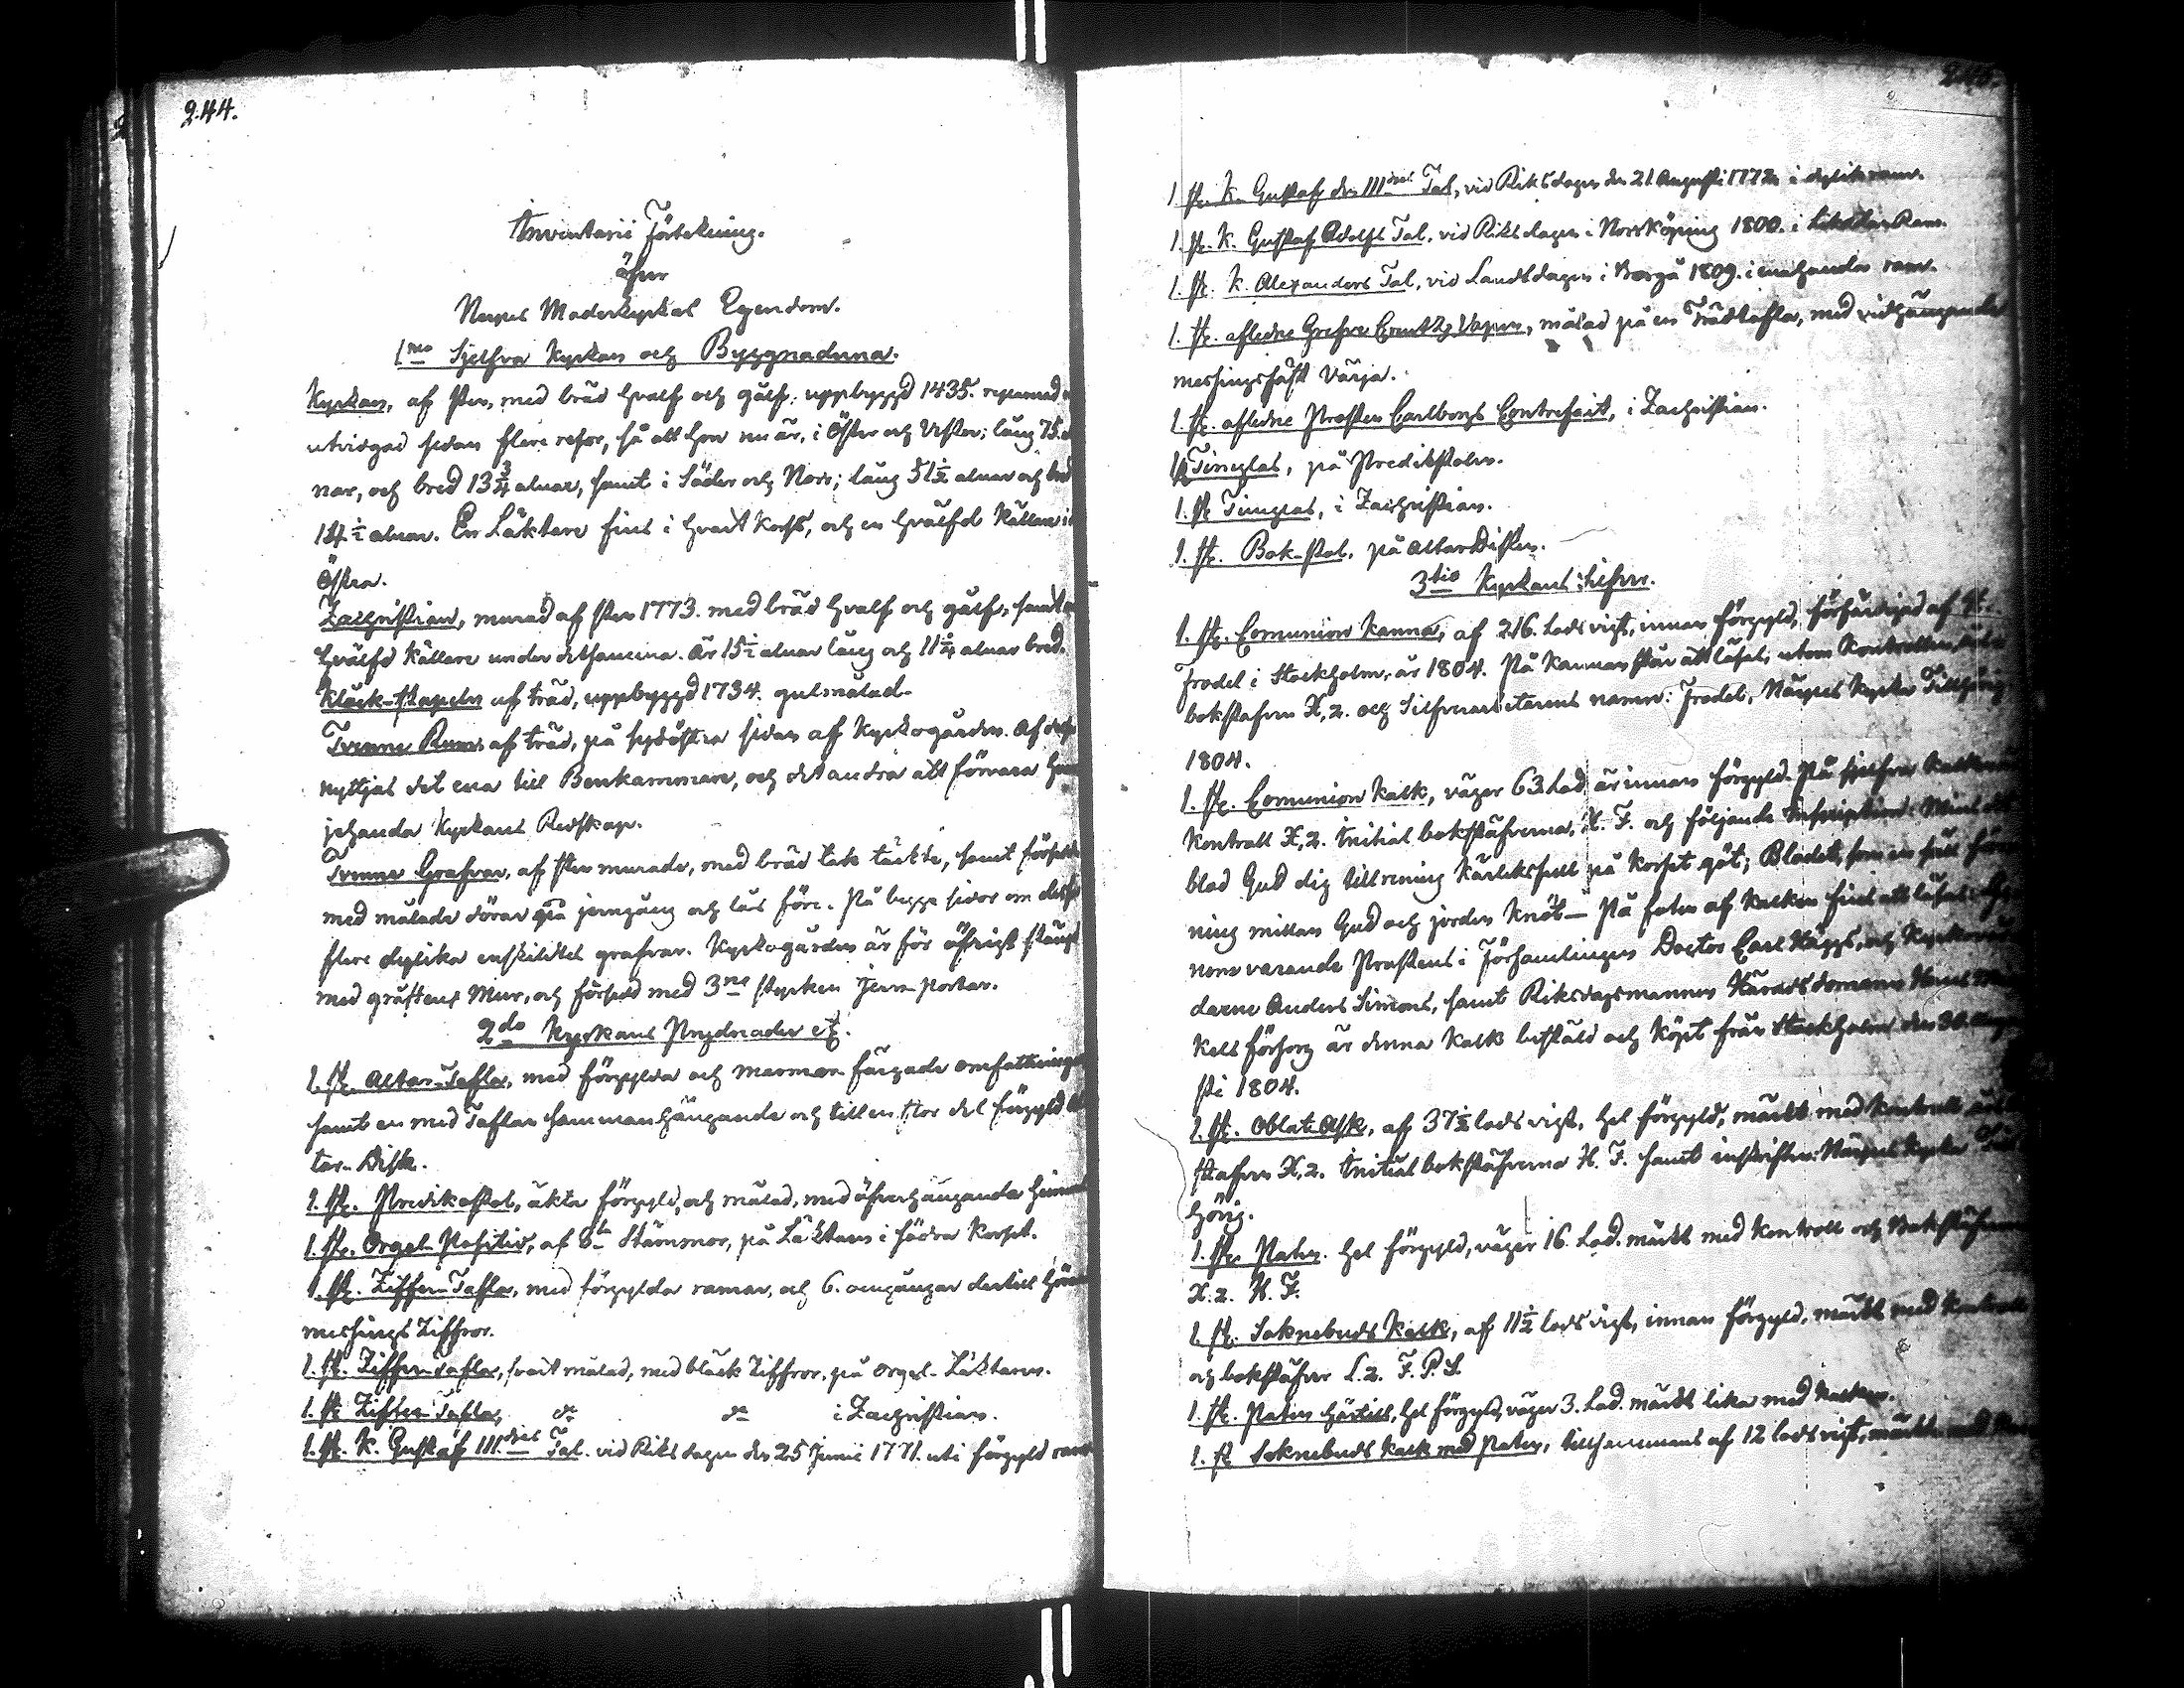 244.
Inventarii Förtekning.
öfver
Nerpes Moderkyrkas Egendom.
1mo Sjelfva Kyrkan och Byggnaderna.
Kyrkan, af sten, med bräd hvalf och gålf, uppbyggd 1435. reparerad
utvidgad sedan flere resor, så att hon nu är, i Öster och Vester; lång 75.
nar, och bred 13 3/4 alnar, samt i Söder och Norr; lång 51 1/2 alnar och bred
14 1/2 alnar. En Läktare fins i hvart Kors, och en hvälfd Källare i
Östra.
Zachristian, murad af sten 1773. med bräd hvalf och gålf, samt
hvälfd Källare under detsamma. Är 15 1/2 alnar lång och 11 1/4 alnar bred.
Klåck-stapeln af träd, uppbyggd 1734. gulmålad.
Tvenne Rum af träd, på sydöstra sidan af Kyrkogården. Af
nyttjas det ena till Benkammare, och det andra att förvara
jehanda Kyrkans Redskap.
Tvenne Grafvar, af sten murade, med bräd tak täckte, samt försedde
med målade dörar på jerngång och lås före. På begge sidor om
flere dylika enskildtes grafvar. Kyrkogården är för öfrigt stängd
med gråstens Mur, och försedd med 3ne stycken Jern portar.
2do Kyrkans Prydnader etc.
1. st. Altar-Tafla, med förgylda och marmor färgade omfattningar
samt en med Taflan sammanhängande och till en stor del förgyld
tar-Disk.
1. st. Predikostol, äkta förgyld, och målad, med öfverhängande
1. st. Orgel-Positiv, af 8ta Stämmor, på Läktarn i södra Korset.
1. st. Ziffer-Tafla, med förgylda ramar, och 6. omgångar dertill
messings Ziffror.
1. st. Ziffer-Tafla, svart målad, med bläck Ziffror, på Orgel-Läktarn.
1. st. Ziffer-Tafla, do do i Zachristian.
1. st. K. Gustaf III:djes Tal. vid Riksdagen den 25 Junii 1771. uti förgyld ram
1. st. K. Gustaf den III:djes Tal, vid Riksdagen den 21 Augusti 1772. i dylik ram.
1. st. K. Gustaf Adolfs Tal, vid Riksdagen i Norrköping 1800. i likadan Ram.
1. st. K. Alexanders Tal, vid Landtdagen i Borgå 1809. i enahanda ram.
1. st. afledne Grefve Creutz's Vapen, målad på en Trädtafla, med vidhängande
messingsfäst Värja.
1. st. afledne Prosten Carlborgs Contrefait, i Zachristian.
1 st Timglas, på Predikstolen.
1. st Timglas, i Zachristian.
1. st. Bok-stol, på altar Disken.
3tio Kyrkans Silfver.
1. st. Comunion Kanna, af 216. Lods vigt, innan förgyld, förfärdigad af
Frodel i Stockholm, år 1804. På Kannan står att läsas, utom Kontrollen,
bokstafven X, 2. och Silfverarbetarens namn: Frodel, Nerpes Kyrka
1804.
1. st. Comunion Kalk, väger 63. Lod är innan förgyld. På sjelfva Kalken
Kontroll X, 2. Initial bokstäfverna, H. F. och följande Inscription: Mins
blod Gud dig till rening Kärleksfull på Korset göt; Blodet, som en
ning millan Gud och jorden Knöt— På foten af Kalken fins att läsas:
nom varande Prostens i Församlingen Doctor Carl Häggs, och
derne Anders Simons, samt Riksdagsmannen Häradsdomaren Hans
Kells försorg är denna Kalk bestäld och Köpt från Stockholm den 30.
sti 1804.
1. st. Oblat Ask, af 37 1/2 lods vigt, hel förgyld, märkt med Kontroll
stafven X, 2. Initial bokstäfverna H. F. samt inskriften: Nerpes Kyrka
hörig.
1. st. Paten. hel förgyld, väger 16. Lod. märkt med Kontroll och Bokstäfver
X. 2. H. F.
1. st. Soknebuds Kalk, af 11 1/2 lods vigt, innan förgyld, märkt med Kontroll
och bokstäfver L. 2. F. P. S.
1. st. Paten härtill, hel förgyld, väger 3. Lod. märkt lika med Kalken.
1. st Soknebuds Kalk med Paten, tillsammans af 12 lods vigt, märkte med